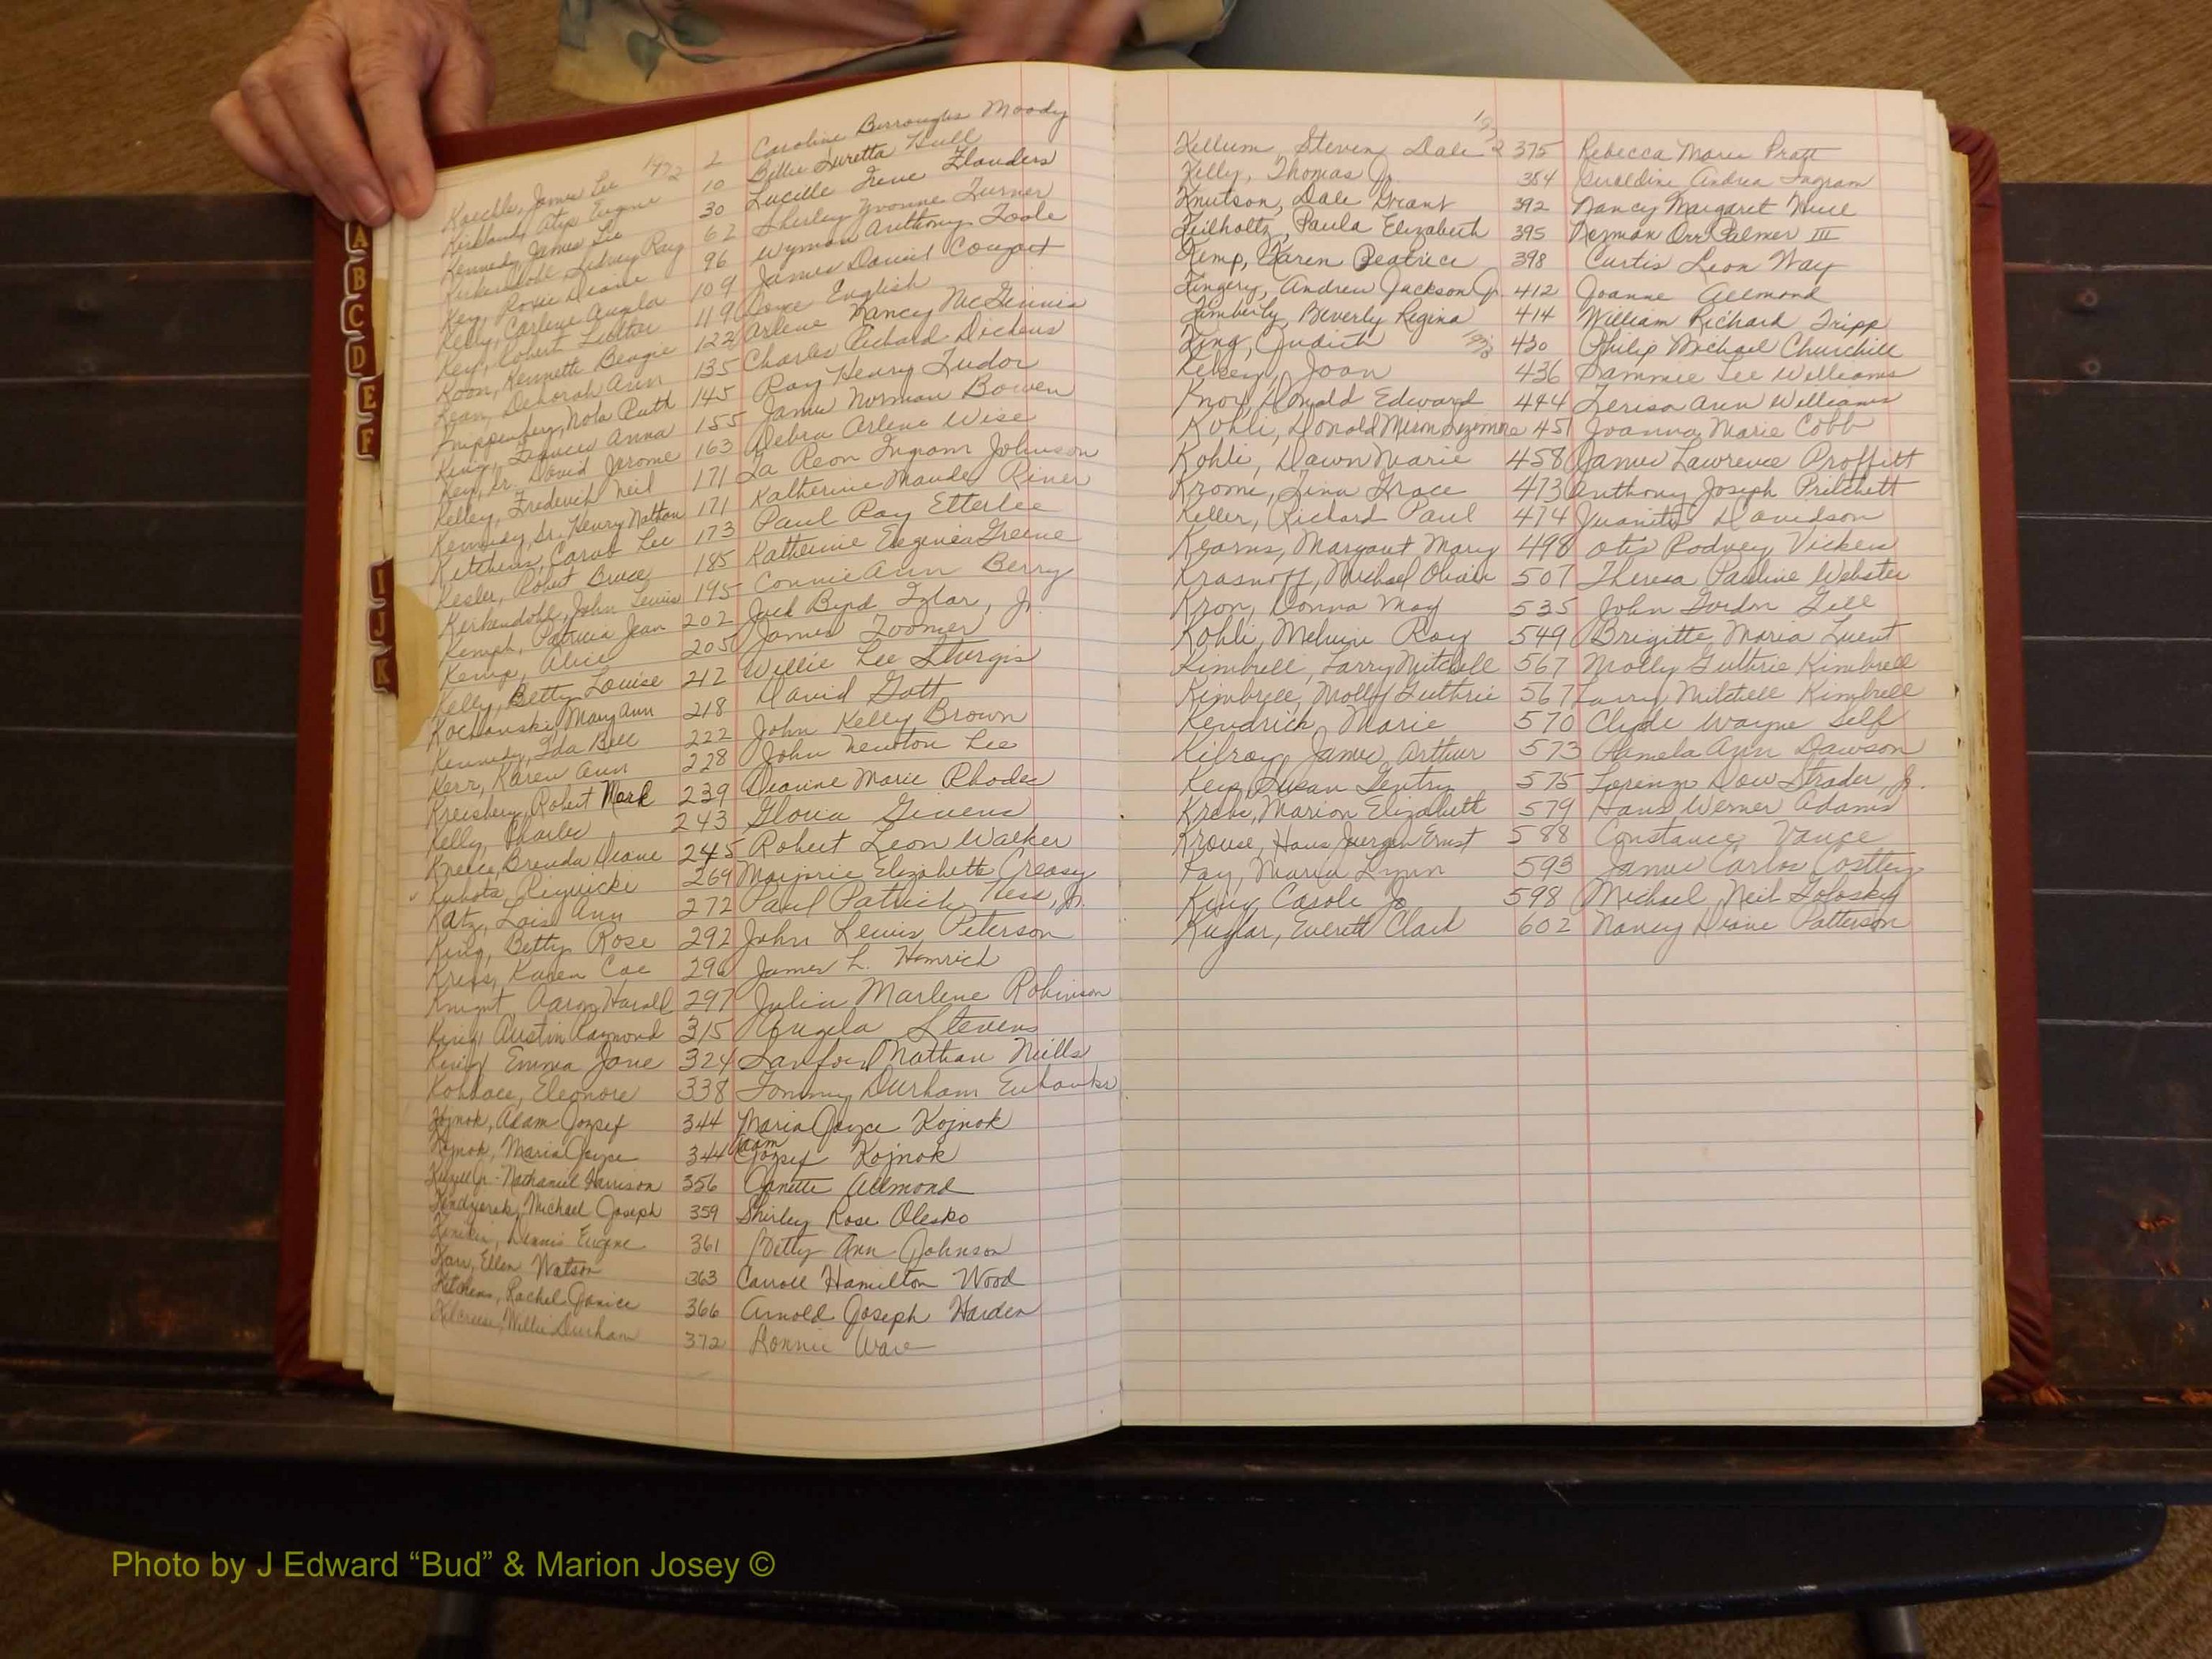 1972
Koechle, James Lee 2 Caroline Burroughs Moody
Kirkland, Otis Eugene 10 Billie Luretta Hull
Kennedy, James Lee 30 Lucille Irene Flanders
Kuhendohl Sidney Ray 62 Shirley Yvonne Turner
Key, Roxie Diane 96 Wyman Anthony Toole
Kelly, Carlene Angela 109 James Daniel
Key, Robert 119 English
Koon, Kenneth 122 Arlene Nancy McGinnis
Kean, Deborah Ann 135 Charles Richard Dickens
Nola Ruth 145 Ray Henry Tudor
King, Frances Anna 155 James Norman Bowen
Key, Sr. David Jerome 163 Debra Arlene Wise
Kelley, Frederick Neil 171 La Reon Ingram Johnson
Kennedy, Sr. Henry Nathan 171 Katherine Maude Riner
Kitchens, Carol Lee 173 Paul Ray Etterlee
Kesler, Robert Bruce 185 Katherine Eugenia Greene
Kerkendohl, John Lewis 195 Connie Ann Berry
Kemph, Patricia Jean 202 Jack Byrd Tylar, Jr.
Kemp, Alice 205 James Toomer
Kelly, Betty Louise 212 Willie Lee Sturgis
Kochanski Mary Ann 218 David Gott
Kennedy, Ida Bell 222 John Kelly Brown
Kerr, Karen Ann 228 John Newton Lee
Kreisberg, Robert Mark 239 Dianne Marie Rhodes
Kelly, Charles 243 Gloria Givens
Kneece, Brenda Diane 245 Robert Leon Walker
Kubota, 269 Marjorie Elizabeth Creasy
Katz, Lois Ann 272 Paul Patrick Tess, Jr.
King, Betty Rose 292 John Lewis Peterson
Kreps, Karen Cae 296 James L. Hemrich
Knight Aaron Harold 297 Julia Marlene Robinson
King, Austin Raymond 315 Angela Stevens
King Emma Jane 324 Sanford Nathan Mills
Kohlace, Eleonore 338 Tommy Durham Eubanks
Kojnok, Adam Jozsef 344 Maria Joyce Kojnok
Kojnok, Maria Joyce 344 Adam Jozsef Kojnok
Nathaniel Harrison 356 Janette Allmond
Michael Joseph 359 Shirley Rose Olesko
Dennis Eugene 361 Betty Ann Johnson
Karr, Ellen Watson 363 Carroll Hamilton Wood
Kitchens, Rachel Janice 366 Arnold Joseph Harden
Kilcrease, Willie Durham 372 Ronnie Ware
Kellum, Steven Dale 1972 375 Rebecca Marie Pratt
Kelly, Thomas Jr. 384 Geraldine Andrea Ingram
Knutson, Dale Grant 392 Nancy Margaret Hull
Keilholtz, Paula Elizabeth 395 Norman Orr Palmer III
Kemp, Karen Beatrice 398 Curtis Leon Way
Kingery, Andrew Jackson Jr. 412 Joanne Allmond
Kimberly, Beverly Regina 414 William Richard Tripp
King, Judith 1973 430 Philip Michael Churchill
Kelsey, Joan 436 Sammie Lee Williams
Knox, Donald Edward 444 Teresa Ann Williams
Kohli, Donald 451 Joanna Marie Cobb
Kohli, Dawn Marie 458 James Lawrence Proffitt
Krome, Lina Grace 473 Anthony Joseph Pritchett
Keller, Richard Paul 474 Juanita Davidson
Kearns, Margaret Mary 498 Otis Rodney Vickers
Krasnoff, Michael 507 Theresa Pauline Webster
Kron, Donna May 535 John Gordon Gill
Kohli, Melvin Ray 549 Brigitte Maria Luent
Kimbrell, Larry Mitchell 567 Molly Guthrie Kimbrell
Kimbrell, Molly Guthrie 567 Larry Mitchell Kimbrell
Kendrick, Marie 570 Clyde Wayne Self
Kilroy, James Arthur 573 Pamela Ann Dawson
Key, Susan Gentry 575 Lorenzo Dow Strader, Jr.
Krebs, Marion Elizabeth 579 Hans Werner Adams
Krouse, Hans Juergen Ernst 588 Constance Vance
Kay, Maria Lynn 593 James Carlos Costley
King, Carole Jo 598 Michael Neil Golosky
Kuglar, Everett Clark 602 Nancy Diane Patterson
A
B
C
D
E
F
I
J
K
Photo by J Edward “Bud” & Marion Josey ©